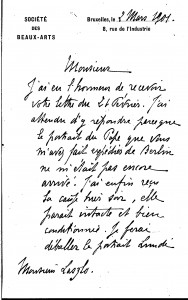 SOCIÉTÉ
DES
BEAUX-ARTS
Bruxelles, le 2 Mars 1901.
8, rue de l'Industrie
Monsieur
J'ai eu l'honneur de recevoir
votre lettre du 26 Février. J'ai
attendu d'y répondre parceque
le portrait du Pape que vous
m'avez fait expédier de Berlin
ne m'était pas encore
arrivé. J'ai enfin reçu
la caisse hier soir, elle
parait intacte et bien
conditionnée. Je ferai
déballer le portrait Lundi
Monsieur Laszlo.